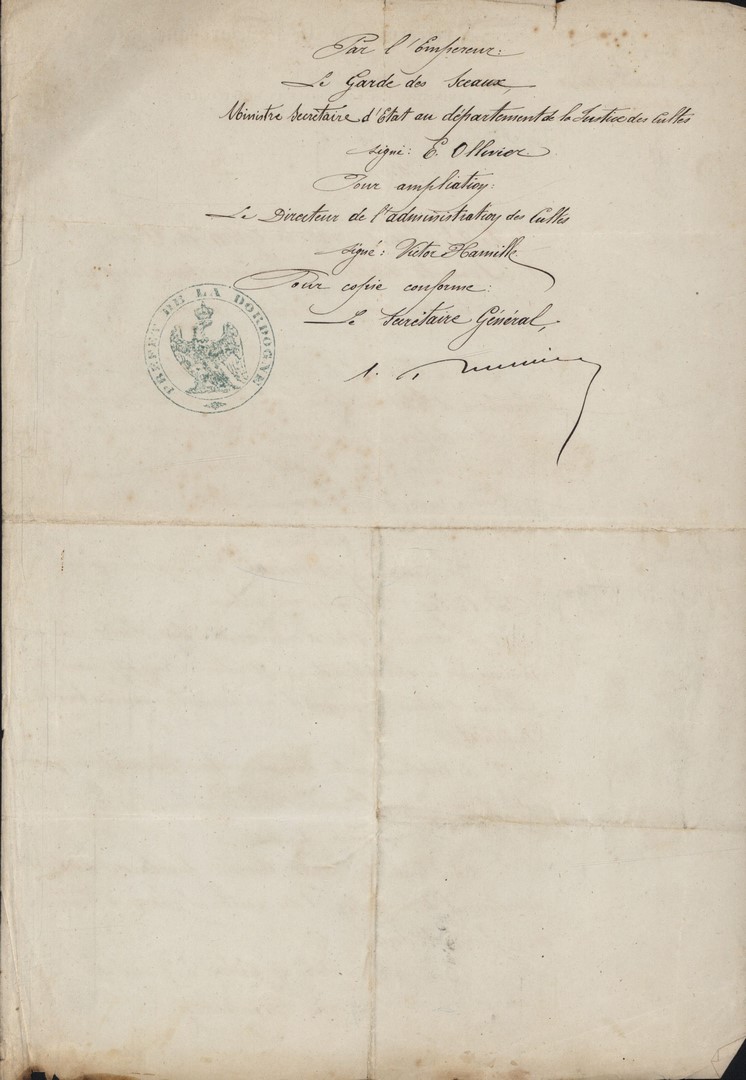 Par l'Empereur:
Le Garde des Sceaux,
Ministre Secrétaire d'Etat au département de la Justice des Cultes
signé: E. Ollivier
Pour ampliation:
Le Directeur de l'administration des Cultes
signé: Victor Hamille
Pour copie conforme:
Le Secrétaire Général,
PREFET DE LA DORDOGNE